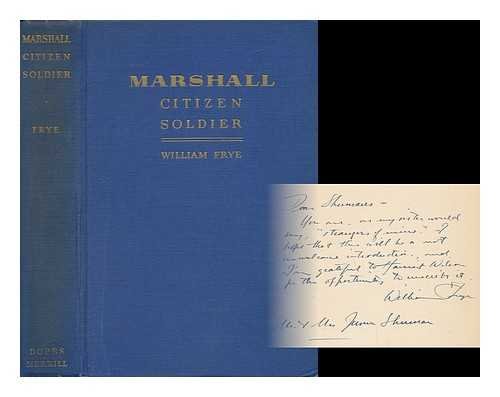 MARSHALL
CITIZEN
SOLDIER
FRYE
BOBBS
MERRILL
MARSHALL
CITIZEN
SOLDIER
WILLIAM FRYE
Dear Shumans –
You are, as my sister would
say, "strangers of mine." I
hope that this will be a not
unwelcome introduction, and
I'm grateful to Wilson
for the opportunity to inscribe it.
William Frye
Mr & Mrs Shuman